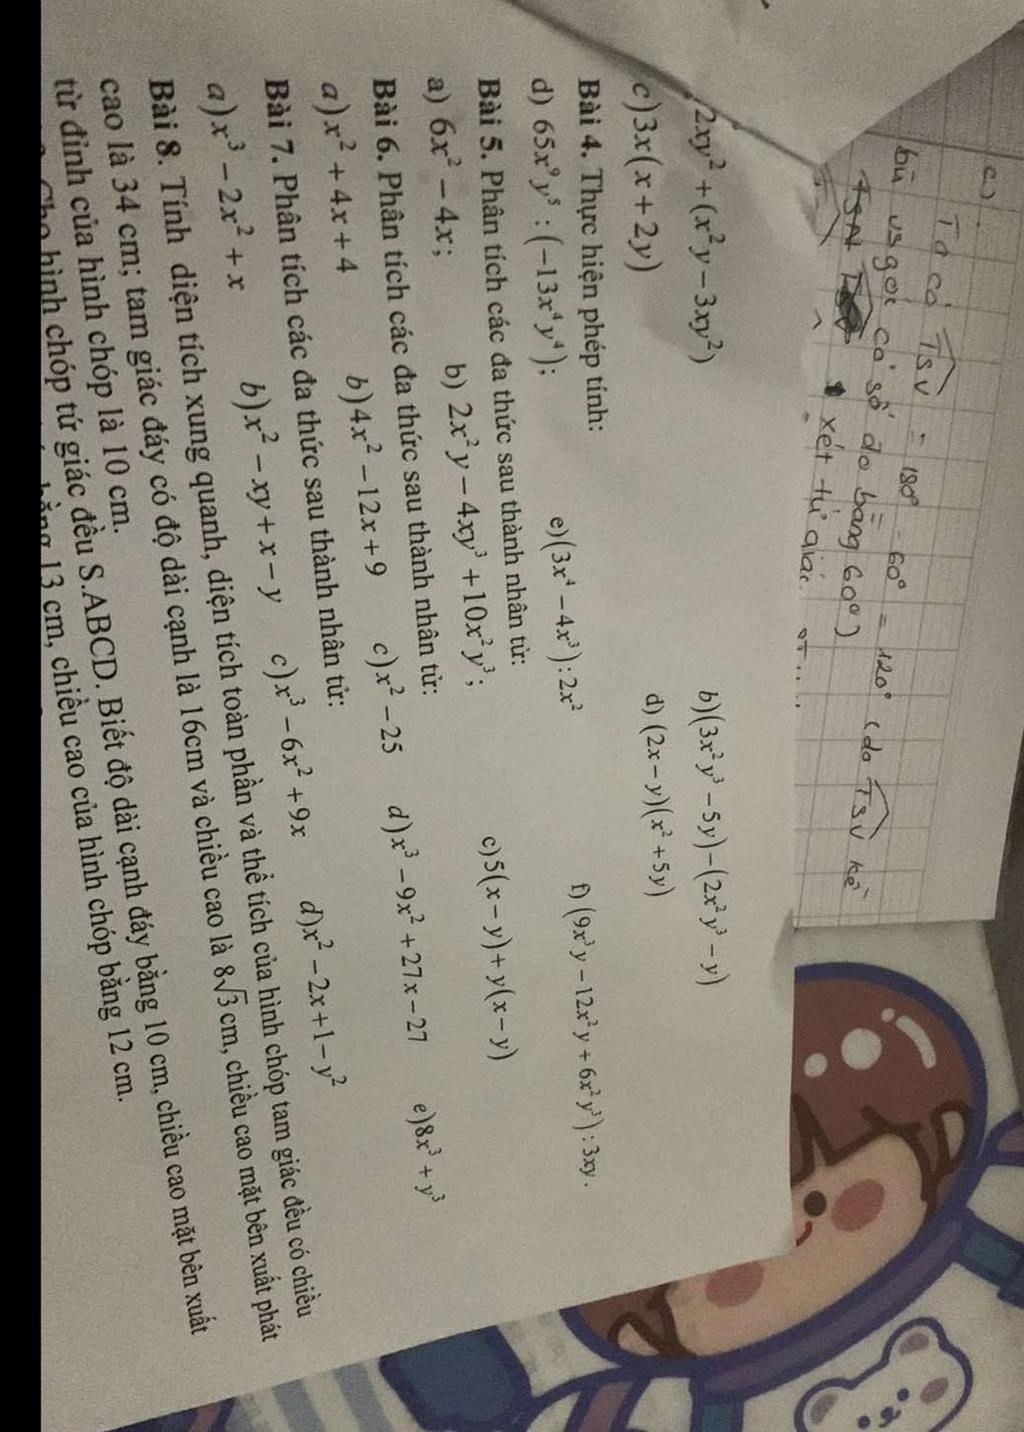 c)
Ta có TSV = 180° - 60° = 120° (do TSV kề
bù với góc có số đo bằng 60°)
xét tứ giác
2xy² + (x²y – 3xy²)
b)(3x²y³ – 5y) – (2x²y³ – y)
c)3x(x + 2y)
d) (2x – y)(x² + 5y)
Bài 4. Thực hiện phép tính:
d) 65x⁹y⁵ : (–13x⁴y⁴);
e)(3x⁴ – 4x³) : 2x²
f) (9x³y – 12x²y + 6x²y³) : 3xy.
Bài 5. Phân tích các đa thức sau thành nhân tử:
a) 6x² – 4x;
b) 2x²y – 4xy³ + 10x²y³;
c)5(x – y) + y(x – y)
Bài 6. Phân tích các đa thức sau thành nhân tử:
a)x² + 4x + 4
b)4x² – 12x + 9
c)x² – 25
d)x³ – 9x² + 27x – 27
e)8x³ + y³
Bài 7. Phân tích các đa thức sau thành nhân tử:
a)x³ – 2x² + x
b)x² – xy + x – y
c)x³ – 6x² + 9x
d)x² – 2x + 1 – y²
Bài 8. Tính diện tích xung quanh, diện tích toàn phần và thể tích của hình chóp tam giác đều có chiều
cao là 34 cm; tam giác đáy có độ dài cạnh là 16cm và chiều cao là 8√3 cm, chiều cao mặt bên xuất phát
từ đỉnh của hình chóp là 10 cm.
Cho hình chóp tứ giác đều S.ABCD. Biết độ dài cạnh đáy bằng 10 cm, chiều cao mặt bên xuất
bằng 13 cm, chiều cao của hình chóp bằng 12 cm.